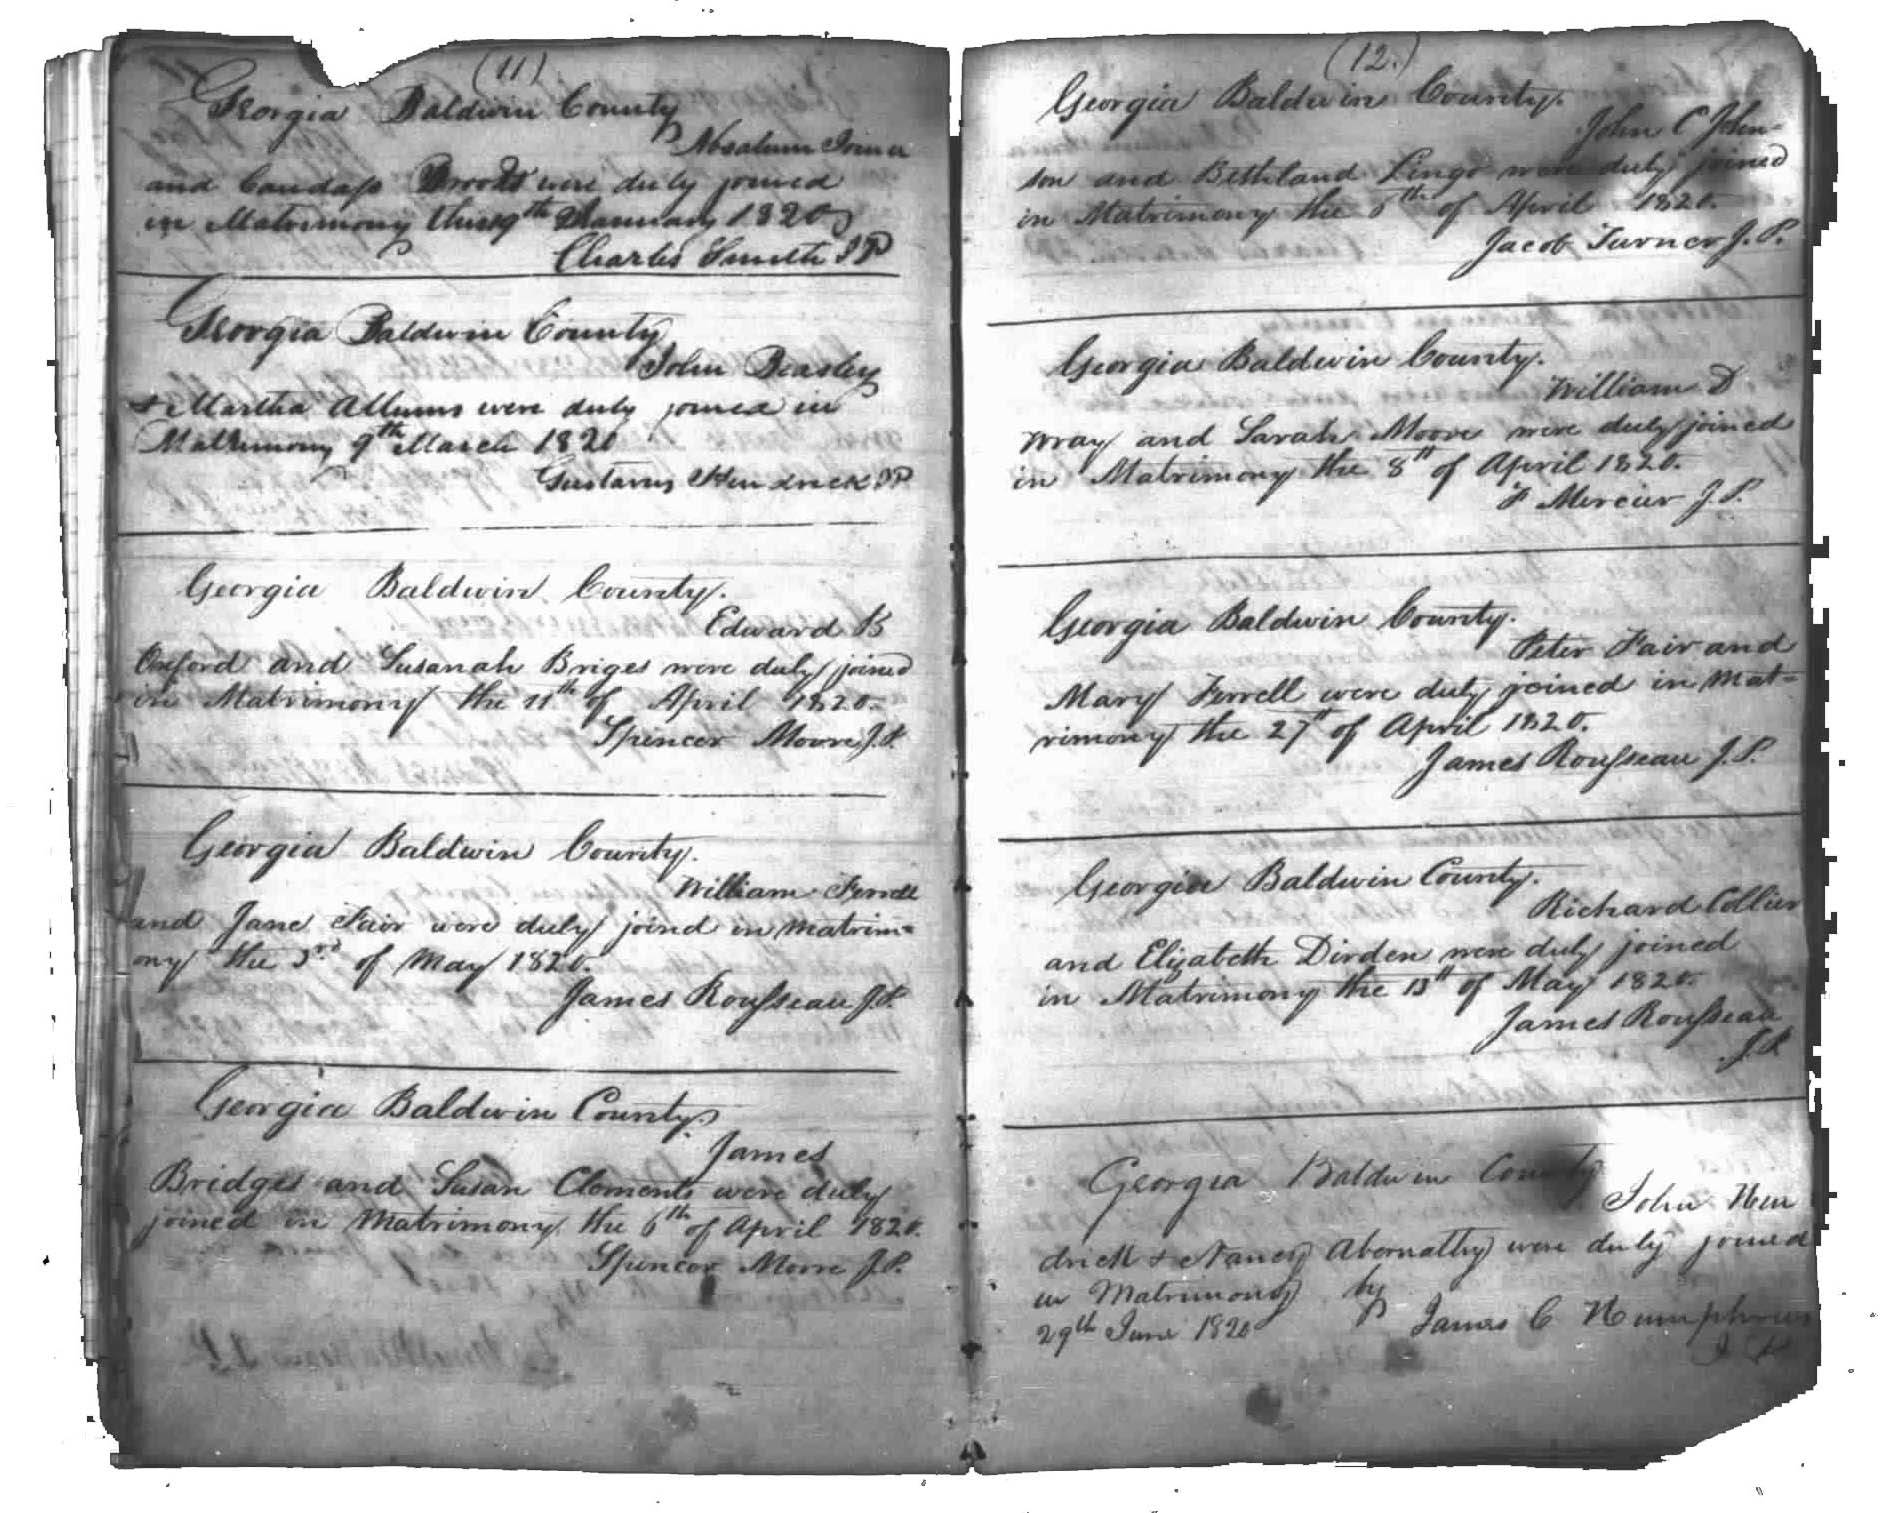 (11)
Georgia Baldwin County
Absalum Joiner
and Candass Brooks were duly joined
in Matrimony this 9th January 1820
Charles Smith JP
Georgia Baldwin County
John Beasley
& Martha Allums were duly joined in
Mathimony 9th March 1820
Gustavus Hendrick JP
Georgia Baldwin County.
Edward B
Oxford and Susanah Briges were duly joined
in Matrimony the 11th of April 1820.
Spencer Moore J.P.
Georgia Baldwin County.
William Ferrell
and Jane Fair were duly joined in matrim=
ony the 3rd of May 1820.
James Rousseau J.P.
Georgia Baldwin County.
James
Bridges and Susan Clements were duly
joined in Matrimony the 6th of April 1820.
Spencer Moore J.P.
(12.)
Georgia Baldwin County.
John C John=
son and Bethland Lingo were duly joined
in Matrimony the 6th of April 1820.
Jacob Turner J.P.
Georgia Baldwin County.
William D
Wray and Sarah Moore were duly joined
in Matrimony the 8th of April 1820.
F Mercier J.P.
Georgia Baldwin County.
Peter Fair and
Mary Ferrell were duly joined in Mat=
rimony the 27th of April 1820.
James Rousseau J.P.
Georgia Baldwin County.
Richard Collier
and Elizabeth Dirden were duly joined
in Matrimony the 13th of May 1820.
James Rousseau
J.P.
Georgia Baldwin County
John Hen
drick & Nancy Abernathy were duly joined
in Matrimony by
29th June 1820 James C Humphries
J P